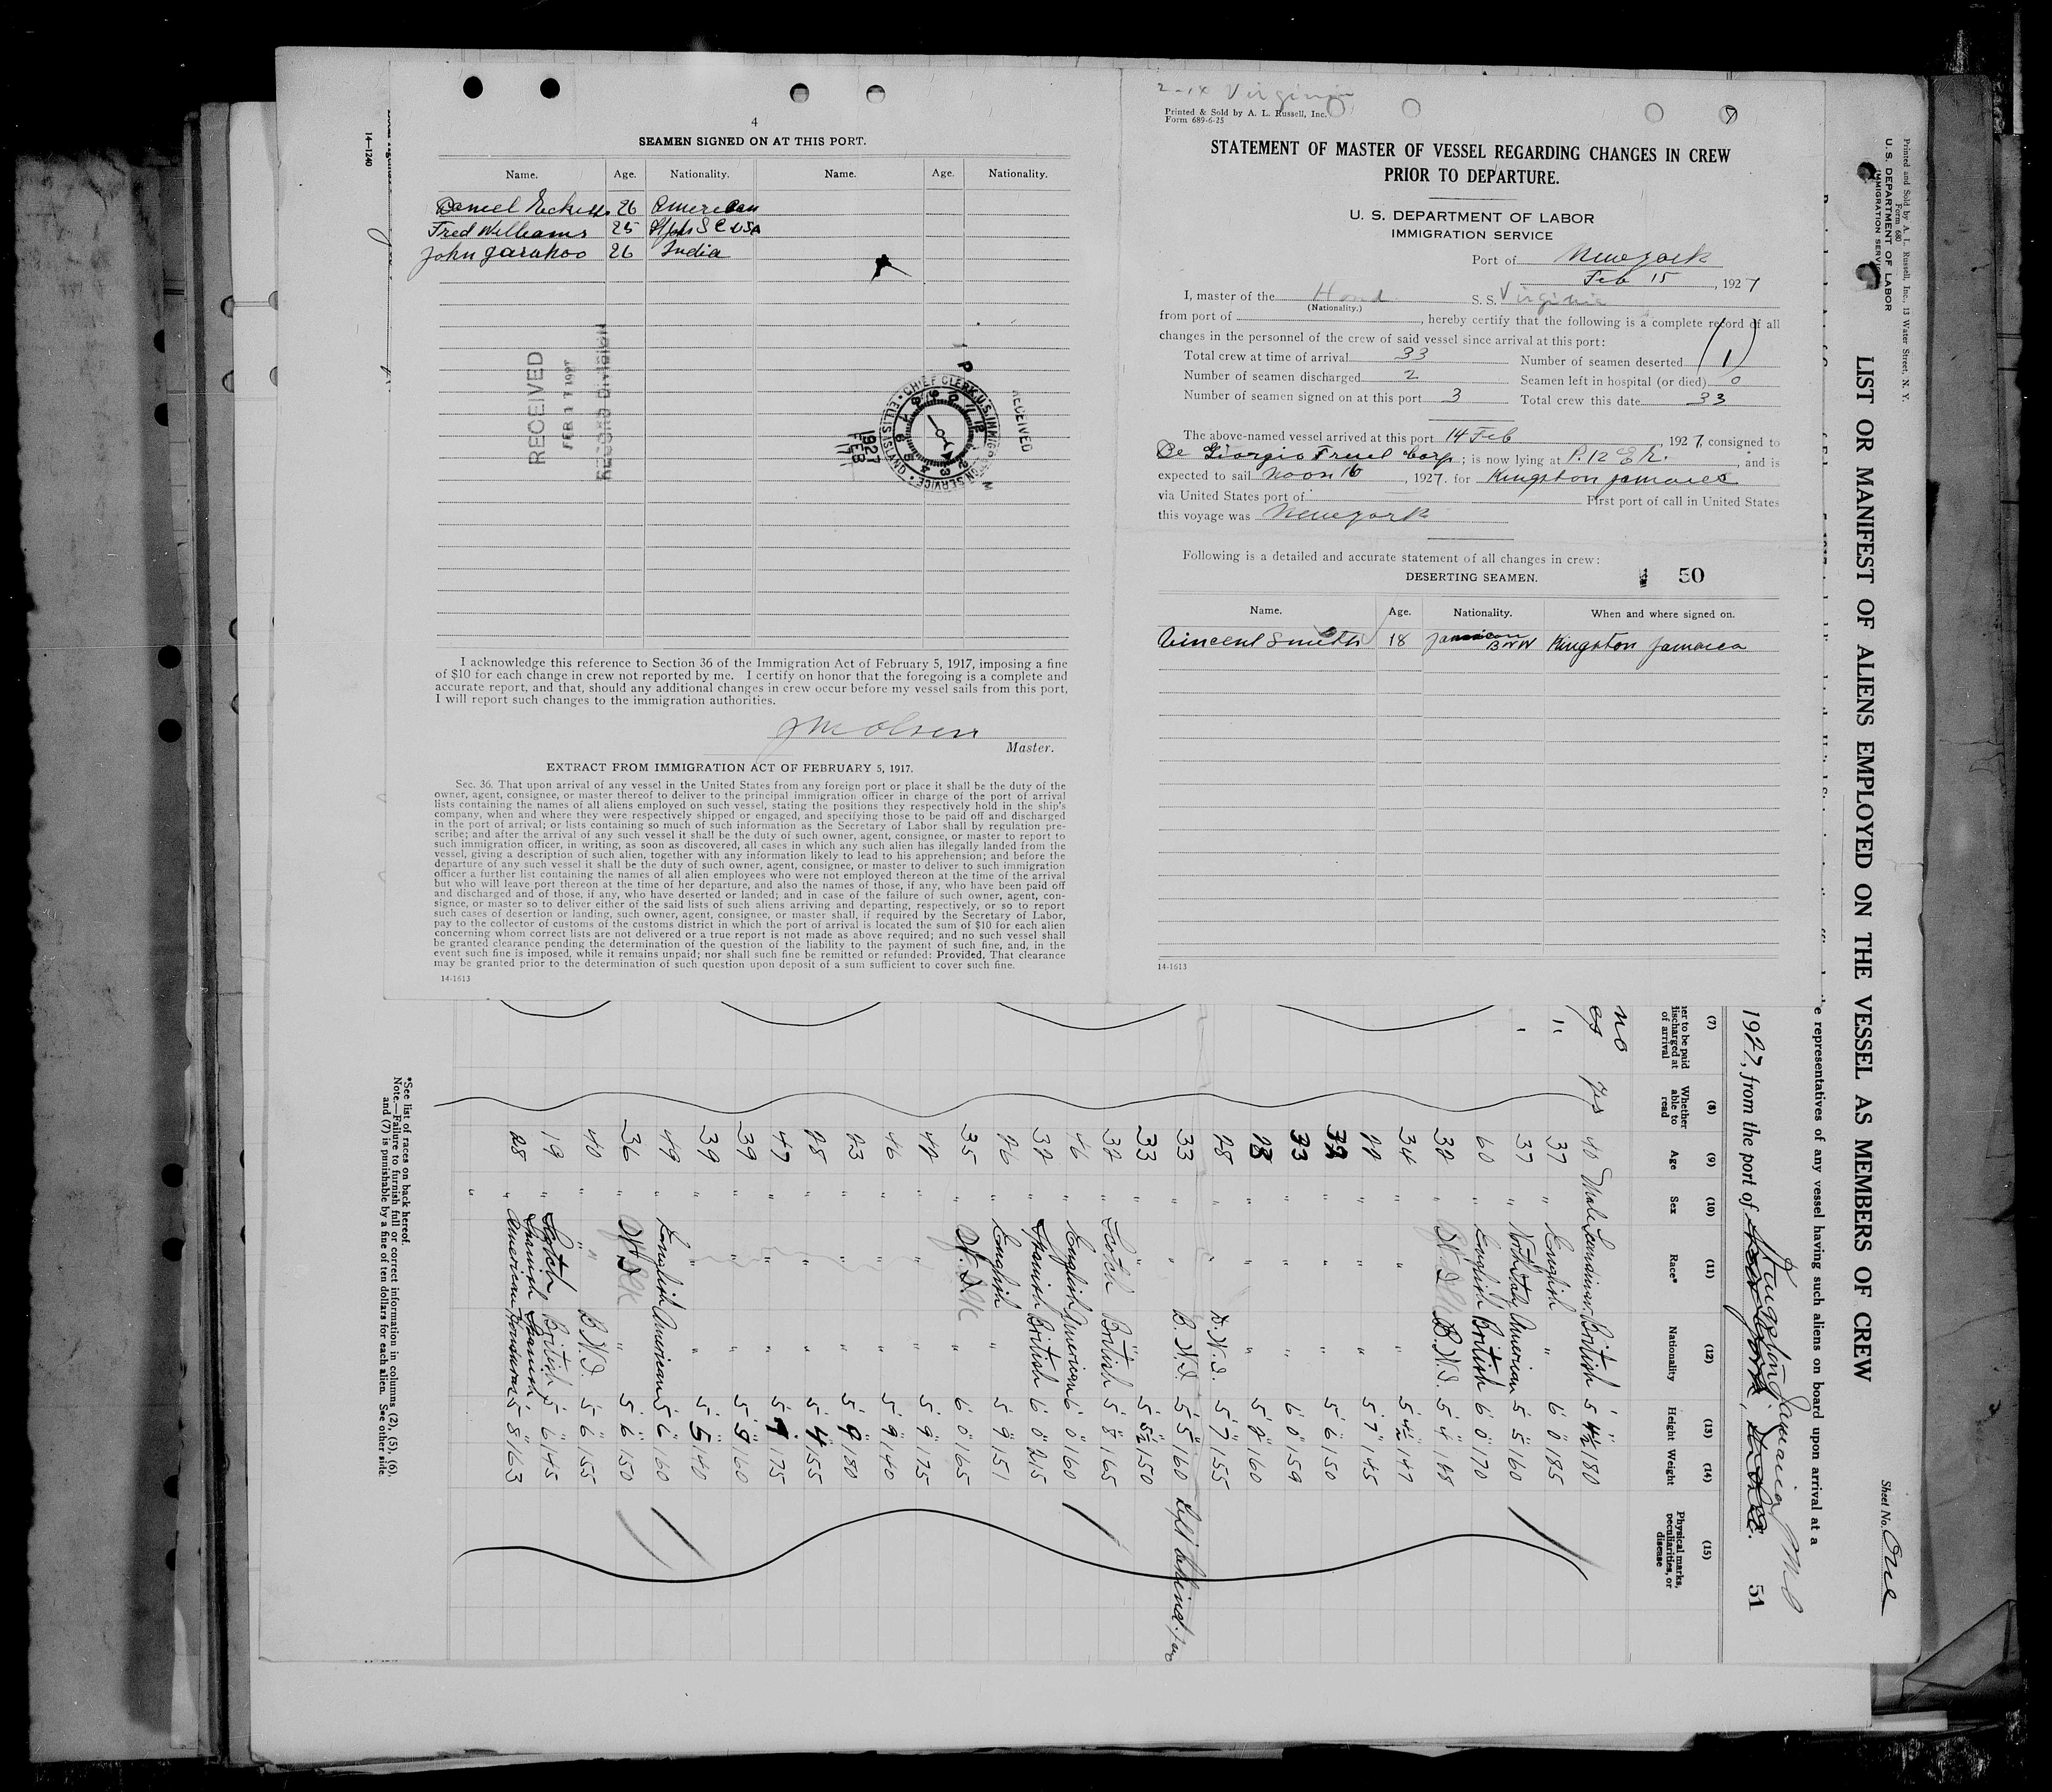 4
SEAMEN SIGNED ON AT THIS PORT.
Name. Age. Nationality. Name. Age. Nationality.
Daniel 26 American
Fred Williams 25 S C USA
John 26 India
RECEIVED
FEB 17 1927
RECORD DIVISION
RECEIVED
CHIEF CLERK U.S. IMMIGRATION SERVICE ELLIS ISLAND
1927 FEB 17
I acknowledge this reference to Section 36 of the Immigration Act of February 5, 1917, imposing a fine
of $10 for each change in crew not reported by me. I certify on honor that the foregoing is a complete and
accurate report, and that, should any additional changes in crew occur before my vessel sails from this port,
I will report such changes to the immigration authorities.
JM Olsen
Master.
EXTRACT FROM IMMIGRATION ACT OF FEBRUARY 5, 1917.
Sec. 36. That upon arrival of any vessel in the United States from any foreign port or place it shall be the duty of the
owner, agent, consignee, or master thereof to deliver to the principal immigration officer in charge of the port of arrival
lists containing the names of all aliens employed on such vessel, stating the positions they respectively hold in the ship's
company, when and where they were respectively shipped or engaged, and specifying those to be paid off and discharged
in the port of arrival; or lists containing so much of such information as the Secretary of Labor shall by regulation pre-
scribe; and after the arrival of any such vessel it shall be the duty of such owner, agent, consignee, or master to report to
such immigration officer, in writing, as soon as discovered, all cases in which any such alien has illegally landed from the
vessel, giving a description of such alien, together with any information likely to lead to his apprehension; and before the
departure of any such vessel it shall be the duty of such owner, agent, consignee, or master to deliver to such immigration
officer a further list containing the names of all alien employees who were not employed thereon at the time of the arrival
but who will leave port thereon at the time of her departure, and also the names of those, if any, who have been paid off
and discharged and of those, if any, who have deserted or landed; and in case of the failure of such owner, agent, con-
signee, or master so to deliver either of the said lists of such aliens arriving and departing, respectively, or so to report
such cases of desertion or landing, such owner, agent, consignee, or master shall, if required by the Secretary of Labor,
pay to the collector of customs of the customs district in which the port of arrival is located the sum of $10 for each alien
concerning whom correct lists are not delivered or a true report is not made as above required; and no such vessel shall
be granted clearance pending the determination of the question of the liability to the payment of such fine, and, in the
event such fine is imposed, while it remains unpaid; nor shall such fine be remitted or refunded: Provided, That clearance
may be granted prior to the determination of such question upon deposit of a sum sufficient to cover such fine.
14-1613
Virginia
Printed & Sold by A. L. Russell, Inc.
Form 689-6-25
STATEMENT OF MASTER OF VESSEL REGARDING CHANGES IN CREW
PRIOR TO DEPARTURE.
U. S. DEPARTMENT OF LABOR
IMMIGRATION SERVICE
Port of New York
Feb 15, 1927
I, master of the Hond S. S. Virginia
(Nationality.)
from port of , hereby certify that the following is a complete record of all
changes in the personnel of the crew of said vessel since arrival at this port:
Total crew at time of arrival 33 Number of seamen deserted (1)
Number of seamen discharged 2 Seamen left in hospital (or died) 0
Number of seamen signed on at this port 3 Total crew this date 33
The above-named vessel arrived at this port 14 Feb, 1927, consigned to
De Giorgio Fruit Corp; is now lying at P. 12 E R. , and is
expected to sail Noon 16, 1927. for Kingston Jamaica
via United States port of First port of call in United States
this voyage was New York
Following is a detailed and accurate statement of all changes in crew:
DESERTING SEAMEN.
50
Name. Age. Nationality. When and where signed on.
Vincent Smith 18 Jamaican Kingston Jamaica
14-1613
14-1240
Printed and Sold by A. L. Russell, Inc., 13 Water Street, N. Y.
Form 680
U. S. DEPARTMENT OF LABOR
IMMIGRATION SERVICE
LIST OR MANIFEST OF ALIENS EMPLOYED ON THE VESSEL AS MEMBERS OF CREW
Sheet No. One
e representatives of any vessel having such aliens on board upon arrival at a
1927, from the port of Kingston Jamaica
51
(7) (8) (9) (10) (11) (12) (13) (14) (15)
er to be paid discharged at of arrival
Whether able to read
Age
Sex
Race*
Nationality
Height
Weight
Physical marks, peculiarities, or disease
no
yes 40 Male British 180
" 37 " English " 6 0 185
37 " American 5 5 160
60 " English British 6 0 170
38 " B.W.I. 5 4 148
34 " " " 147
" " " 5 7 145
" " " 5 6 150
33 " " " 6 0 159
" " " 160
28 " " B.W.I. 5 7 155
33 " " B.W.I. 5 5 160 Left behind
33 " " " 150
32 " Scotch British 5 8 165
46 " English American 6 0 160
32 " Spanish British 6 0 215
26 " English " 5 9 151
35 " " 6 0 165
" " " 5 9 175
46 " " " 5 9 140
23 " " " 5 9 180
28 " " " 155
47 " " " 175
39 " " " 160
39 " " " 5 5 140
49 " English American 5 6 160
36 " " 5 6 150
40 " " B.W.I. 5 6 155
19 " Scotch British 5 6 145
Spanish Spanish
28 " American 5 8 163
*See list of races on back hereof.
Note.—Failure to furnish full or correct information in columns (2), (5), (6),
and (7) is punishable by a fine of ten dollars for each alien. See other side.